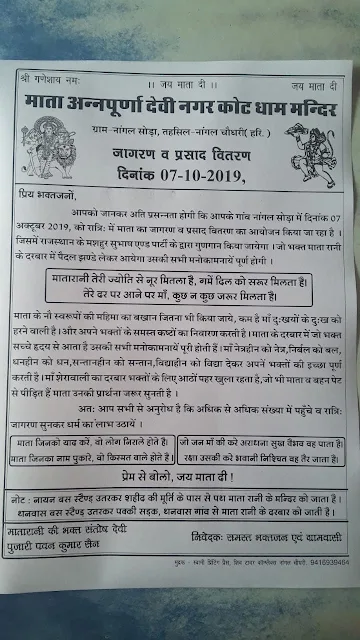 श्री गणेशाय नमः
।। जय माता दी ।।
जय माता दी
माता अन्नपूर्णा देवी नगर कोट धाम मन्दिर
ग्राम-नांगल सोड़ा, तहसिल-नांगल चौधरी( हरि. )
जागरण व प्रसाद वितरण
दिनांक 07-10-2019,
प्रिय भक्तजनों,
आपको जानकर अति प्रसन्नता होगी कि आपके गांव नांगल सोड़ा में दिनांक 07
अक्टूबर 2019, को रात्रि: में माता का जागरण व प्रसाद वितरण का आयोजन किया जा रहा है ।
जिसमें राजस्थान के मशहुर सुभाष एण्ड पार्टी के द्वारा गुणगान किया जायेगा । जो भक्त माता रानी
के दरबार में पैदल झण्डे लेकर आयेगा उसकी सभी मनोकामनायें पूर्ण होगी ।
मातारानी तेरी ज्योति से नूर मिलता है, गमें दिल को सरूर मिलता है।
तेरे दर पर आने पर माँ, कुछ न कुछ जरूर मिलता है।
माता के नौ स्वरूपों की महिमा का बखान जितना भी किया जाये, कम है माँ दुःखयों के दुःख को
हरने वाली है । और अपने भक्तों के समस्त कष्टों का निवारण करती है । माता के दरबार में जो भक्त
सच्चे हृदय से आता है उसकी सभी मनोकामनायें पूरी होती हैं । माँ नेत्रहीन को नेत्र, निर्बल को बल,
धनहीन को धन, सन्तानहीन को सन्तान, विद्याहीन को विद्या देकर अपनें भक्तों की इच्छा पूर्ण
करती है । माँ शेरावाली का दरबार भक्तों के लिए आठों पहर खुला रहता है, जो भी माता व बहन पेट
से पीड़ित हैं माता उनकी प्रार्थना जरूर सुनती है ।
अतः आप सभी से अनुरोध है कि अधिक से अधिक संख्या में पहुँचे व रात्रि:
जागरण सुनकर धर्म का लाभ उठायें ।
माता जिनको याद करें, वो लोग निराले होते हैं।
माता जिनका नाम पुकारे, वो किस्मत वाले होते हैं ।
जो जन माँ की करे अराधना सुख वैभव वह पाता है।
रक्षा उसकी करे भवानी निश्चित वह तैर जाता है।
प्रेम से बोलो, जय माता दी !
नोट : नायन बस स्टैण्ड उतरकर शहीद की मूर्ति के पास से पथ माता रानी के मन्दिर को जाता है ।
धनवास बस स्टैण्ड उतरकर पक्की सड़क, धनवास गांव से माता रानी के दरबार को जाती है ।
मातारानी की भक्त संतोष देवी
पुजारी पवन कुमार सैन
निवेदक: समस्त भक्तजन एवं ग्रामवासी
9416939464